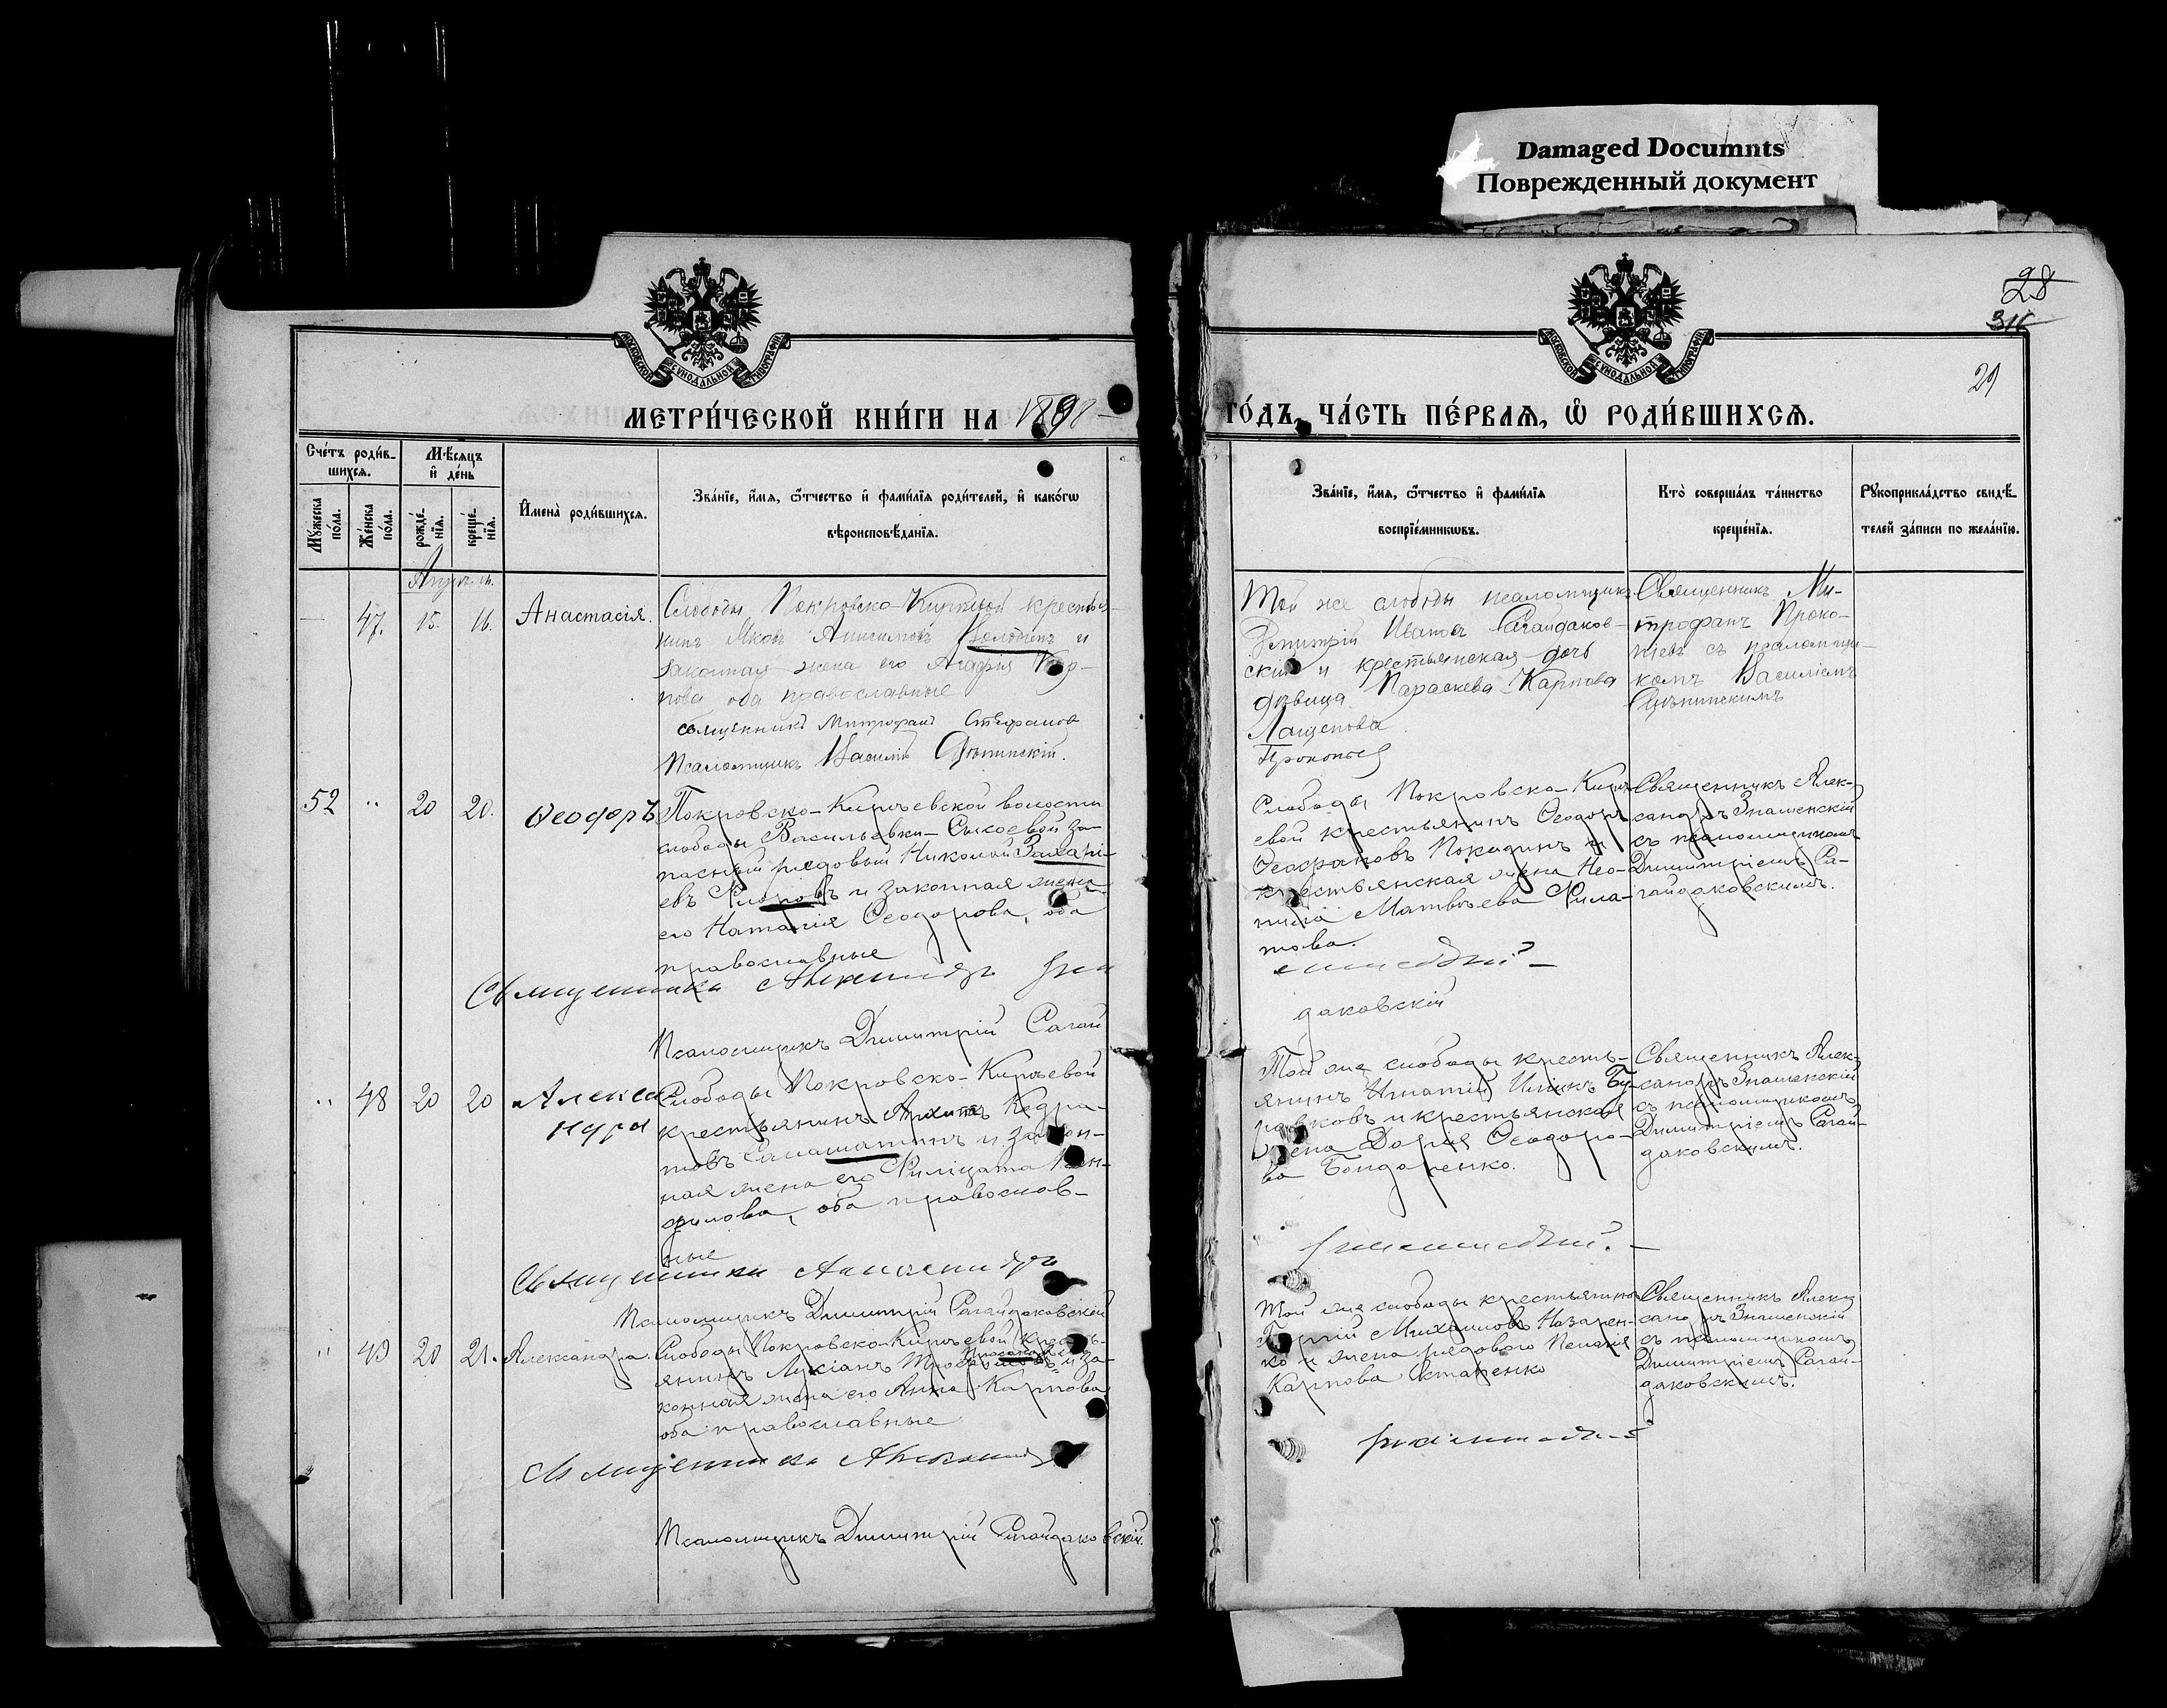 Damaged Documnts
Поврежденный документ
28
29
МОСКОВСКОЙ СѴНОДАЛЬНОЙ ТИПОГРАФІИ
МОСКОВСКОЙ СѴНОДАЛЬНОЙ ТИПОГРАФІИ
МЕТРИ́ЧЕСКОЙ КНИ́ГИ НА
ГО́ДЪ, ЧА́СТЬ ПЕ́РВАѦ, Ѽ РОДИ́ВШИХСѦ.
Сче́тъ роди́в-
шихсѧ.
Мѣ́сѧцъ
и҆ де́нь
Мꙋ́жеска
по́ла.
Же́нска
по́ла.
рожде́-
нїѧ.
креще́-
нїѧ.
И҆мена̀ роди́вшихсѧ.
Зва́нїе, и҆́мѧ, ѻ҆́тчество и҆ фами́лїѧ роди́телей, и҆ како́гѡ
вѣроисповѣ́данїѧ.
Зва́нїе, и҆́мѧ, ѻ҆́тчество и҆ фами́лїѧ
воспрїе́мникѡвъ.
Кто̀ соверша́лъ та́инство
креще́нїѧ.
Рꙋкоприкла́дство свидѣ́-
телей за́писи по жела́нїю.
Апрѣль.
47. 15. 16. Анастасія.
Слободы Покровско-Киріевой крестья-
нинъ Яковъ Анисимовъ и
законная жена его Агафія Кар-
пова оба православные
священникъ Митрофанъ Стефановъ
Псаломщикъ Василій
Той же слободы псаломщикъ
Димитрій Ивановъ Сагайдаков-
скій и крестьянская дочь
дѣвица Параскева Карпова
Лащенова
Прокопьевъ
Священникъ Ми-
трофанъ Проко-
пьевъ съ псаломщи-
комъ Василіемъ
52 " 20 20. Ѳеодоръ
Покровско-Кирѣевской волости
слободы Васильевки-Сысоевой за-
пасный рядовый Николай Захарі-
евъ и законная жена
его Наталія Ѳеодорова, оба
православные
Священникъ Александръ
Псаломщикъ Димитрій Сагай
Слободы Покровско-Кирѣ-
евой крестьянинъ Ѳеодоръ
Покидинъ и
крестьянская жена Нео-
нила Матвѣева Фила-
това.
даковскій
Священникъ Алек-
сандръ Знаменскій
съ псаломщикомъ
Димитріемъ Са-
гайдаковскимъ.
" 48 20 20 Алекса
ндра
Слободы Покровско-Кирѣевой
крестьянинъ Архипъ Кодра-
товъ и закон-
ная жена его Филицата Пан-
филова, оба православ-
ные
Священникъ Александръ
Псаломщикъ Димитрій Сагайдаковскій
Той же слободы кресть-
янинъ Игнатій Ильинъ Бу-
раковъ и крестьянская
жена Дарія Ѳеодоро-
ва Бондаренко.
Знаменскій.
Священникъ Алек-
сандръ Знаменскій
съ псаломщикомъ
Димитріемъ Сагай-
даковскимъ.
" 49 20 21. Александра.
Слободы Покровско-Кирѣевой кресть-
янинъ Лукіанъ и за-
конная жена его Анна Карпова
оба православные
Священникъ Александръ
Псаломщикъ Димитрій Сагайдаковскій.
Той же слободы крестьянинъ
Михаиловъ Назарен-
ко и жена рядового Пелагія
Карпова Остапенко
Знаменскій
Священникъ Алекс
сандръ Знаменскій
съ псаломщикомъ
Димитріемъ Сагай-
даковскимъ.